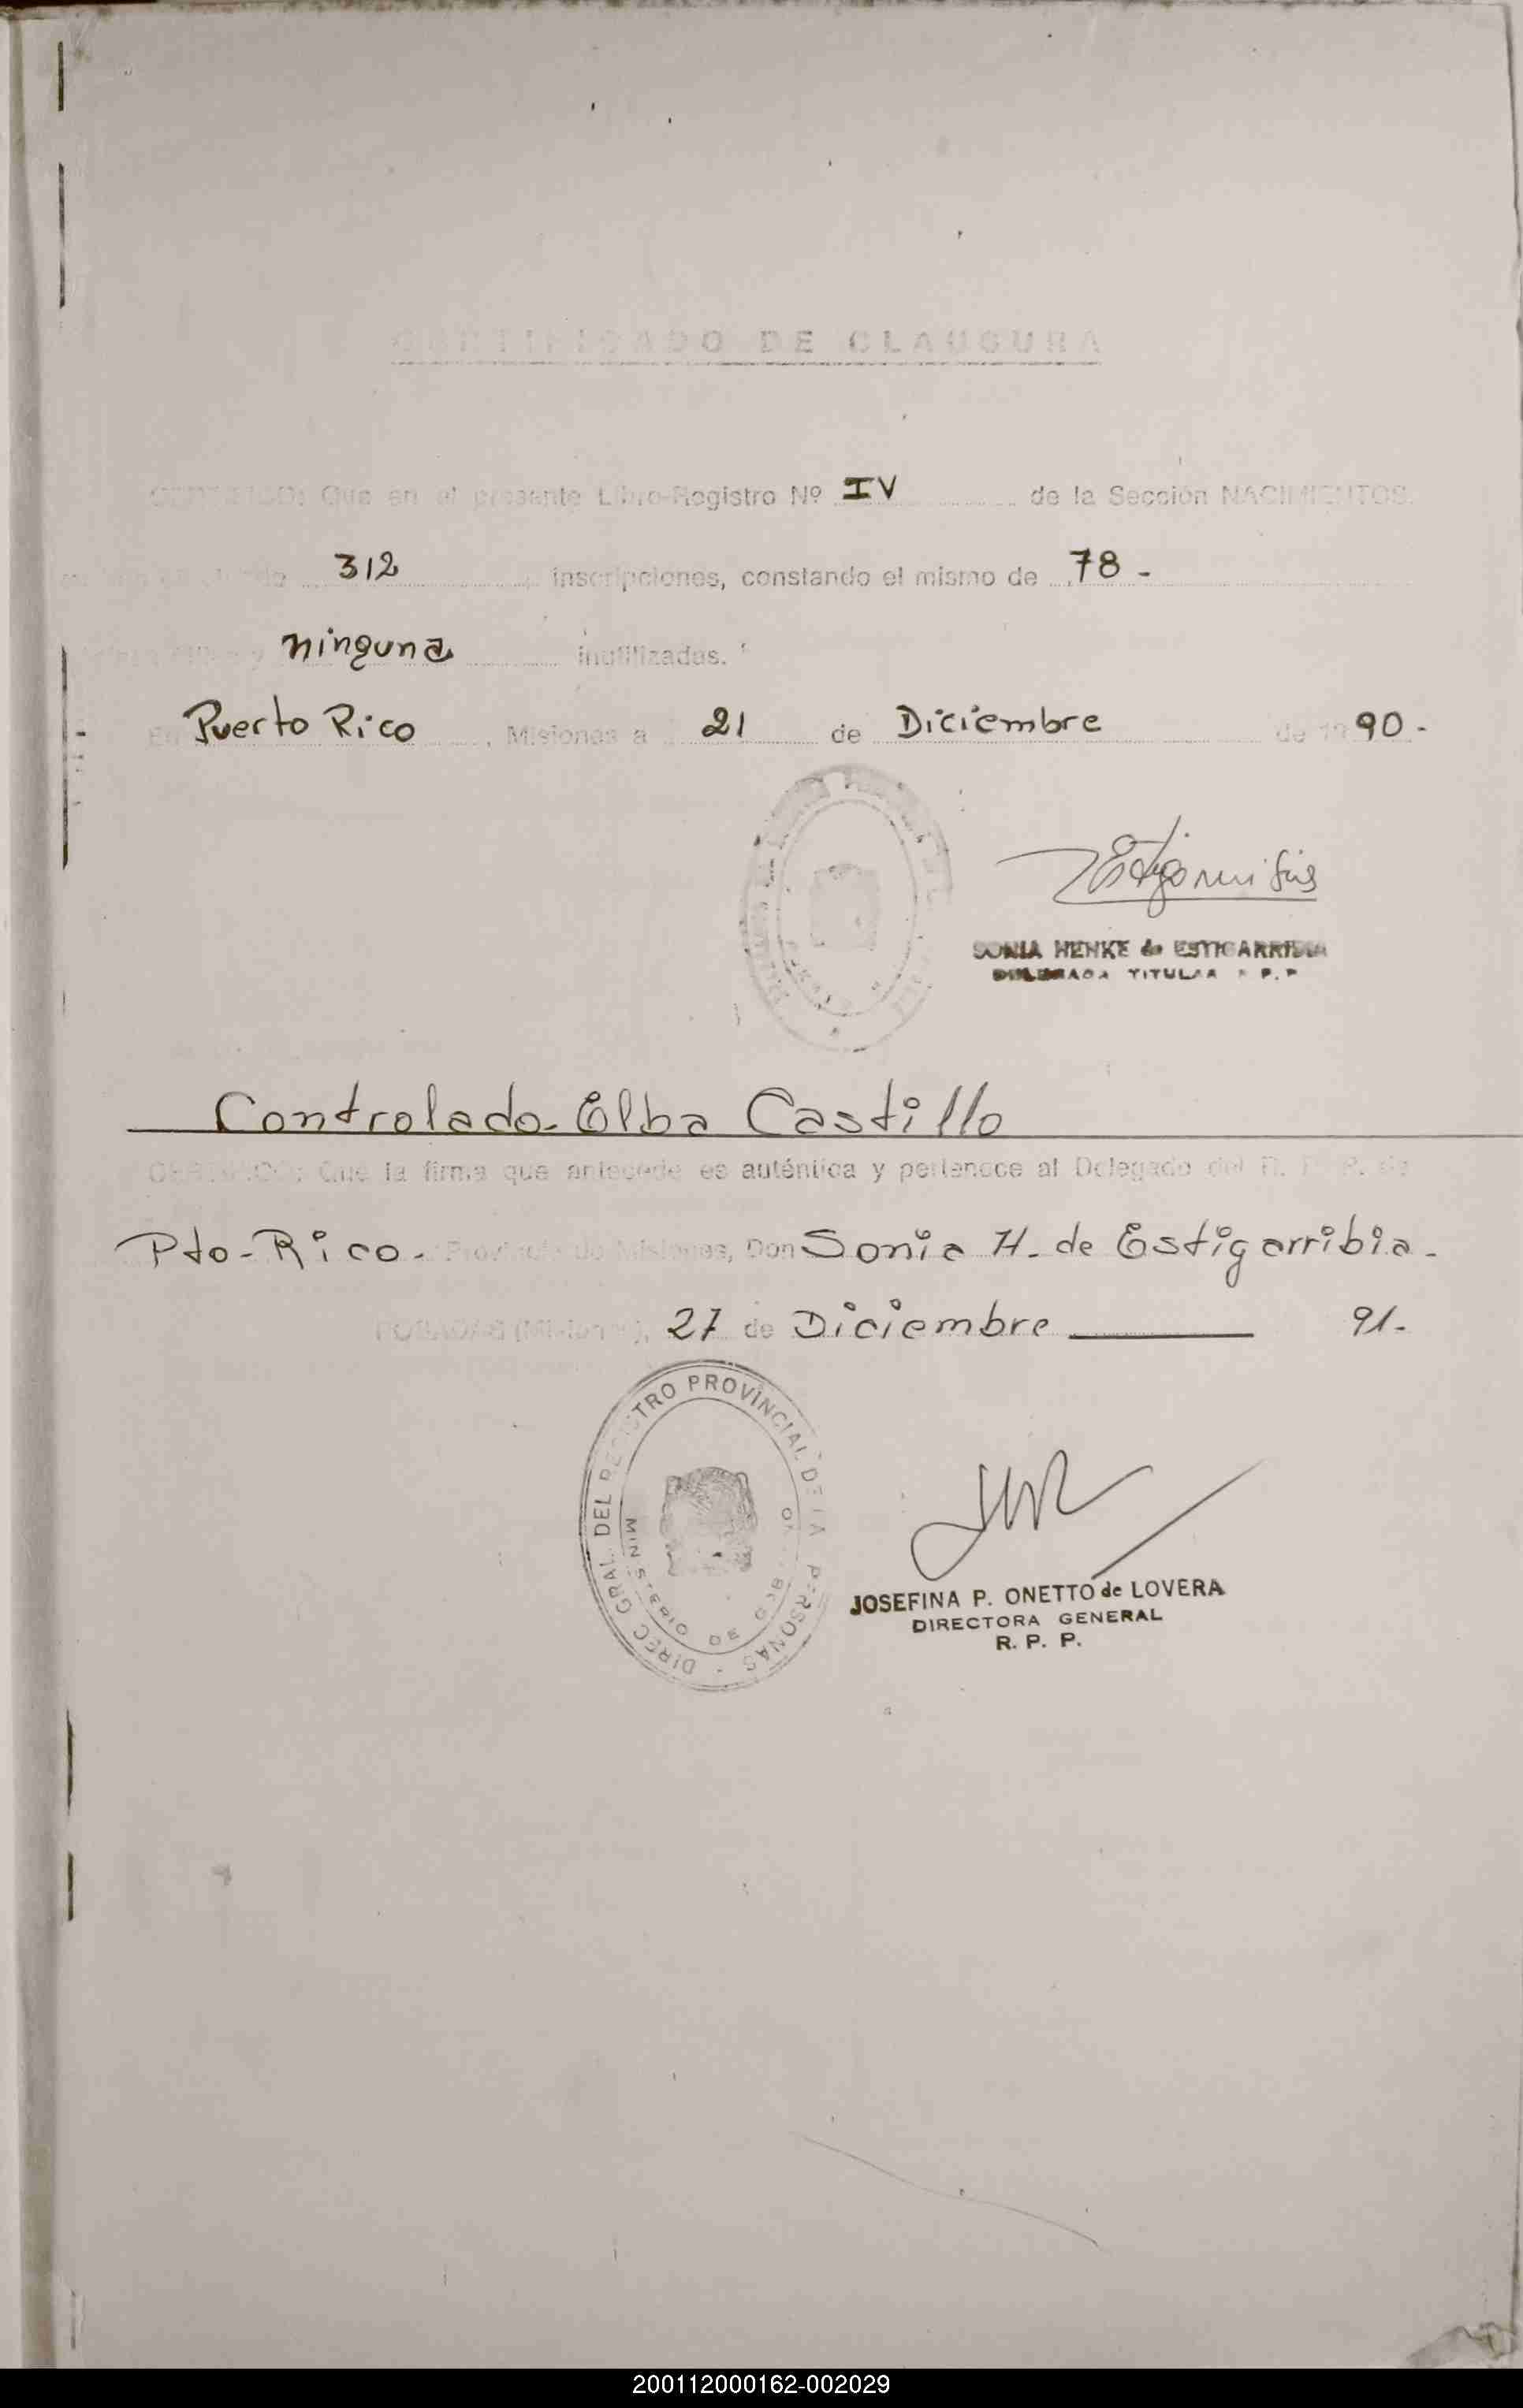 CERTIFICADO DE CLAUSURA
CERTIFICO: Que en el presente Libro-Registro Nº IV de la Sección NACIMIENTOS.
312 inscripciones, constando el mismo de 78 -
ninguna inutilizadas.
En Puerto Rico, Misiones a 21 de Diciembre de 1990.-
SONIA HENKE de ESTIGARRIBIA
DELEGADA TITULAR R. P. P.
Controlado - Elba Castillo
CERTIFICO: Que la firma que antecede es auténtica y pertenece al Delegado del R. P. P. de
Pto-Rico. Provincia de Misiones, Don Sonia H. de Estigarribia.
POSADAS (Misiones), 27 de Diciembre 91.-
DIREC. GRAL. DEL REGISTRO PROVINCIAL DE LA PERSONAS
MINISTERIO DE GOBIERNO
JOSEFINA P. ONETTO de LOVERA
DIRECTORA GENERAL
R. P. P.
200112000162-002029